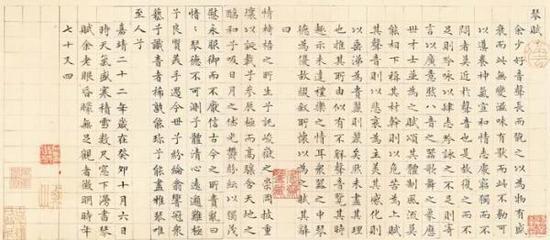 琴賦
余少好音聲長而翫之以為物有盛
衰而此無變滋味有猒而此不勌可
以導養神氣宣和情志處窮獨而不
悶者莫近於音聲也是故復之而不
足則吟詠以肆志吟詠之不足則寄
言以廣意然八音之器歌舞之象歷
世才士並為之賦頌其體制風流莫
能相下稱其材幹則以危苦為上賦
其聲音則以悲哀為主美其感化則
以垂涕為貴麗則麗矣然未盡其理
也推其所由似有不解聲音覽其旨
趣亦未達禮樂之情耳衆器之中琴
德為優故綴叙所懷以為之賦其辭
曰
惟椅梧之所生兮託峻嶽之崇岡披重
壤以誕載兮參辰極而高驤含天地之
醇和兮吸日月之休光鬱紛紜以獨茂
慰永服御而不厭信古今之所貴亂曰
愔愔琴德不可測兮體清心遠邈難極
兮良質美手遇今世兮紛綸翕響冠衆
藝兮識音者稀孰能珍兮能盡雅琴唯
至人兮
嘉靖二十二年歲在癸卯十月六日
時天氣盛寒積雪數尺窓下漫書琴
賦余老眼昏矇無足觀者徵明時年
七十又四